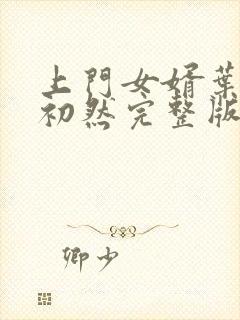 上門女婿葉
初然完整版
卿少